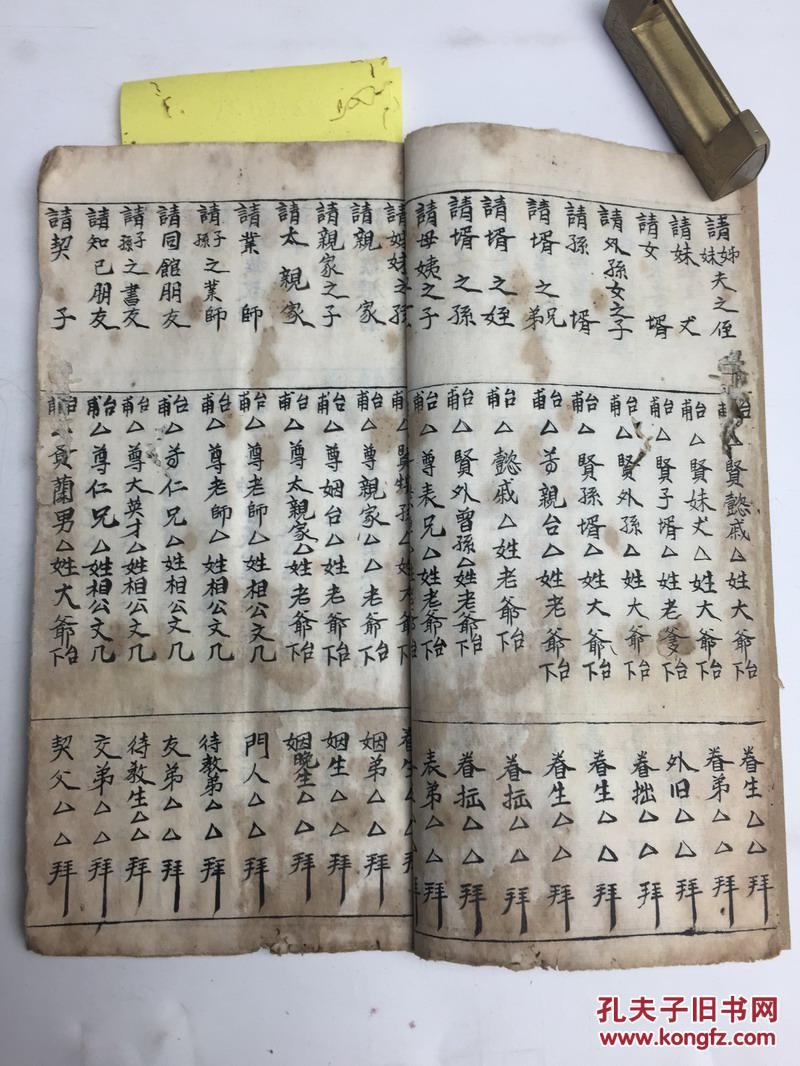 請姊妹夫之侄
請妹丈
請女婿
請外孫女之子
請孫婿
請婿之兄弟
請婿之姪
請婿之孫
請母姨之子
請姐妹之孫
請親家
請親家之子
請太親家
請業師
請子孫之業師
請同館朋友
請子孫之書友
請知己朋友
請契子
台甫△賢懿戚△姓大爺台下
台甫△賢妹丈△姓大爺台下
台甫△賢子婿△姓老爹台下
台甫△賢外孫△姓大爺台下
台甫△賢孫婿△姓大爺台下
台甫△尊親台△姓老爺台下
台甫△懿戚△姓老爺台下
台甫△賢外曾孫△姓老爺台下
台甫△尊表兄△姓老爺台下
台甫△賢
台甫△尊親家△△老爺台下
台甫△尊姻台△姓老爺台下
台甫△尊太親家△姓老爺台下
台甫△尊老師△姓相公文几
台甫△尊老師△姓相公文几
台甫△尊仁兄△姓相公文几
台甫△尊大英才△姓相公文几
台甫△尊仁兄△姓相公文几
台甫△貴蘭男△姓大爺台下
眷生△△拜
眷弟△△拜
外旧△△拜
眷拙△△拜
眷生△△拜
眷生△△拜
眷拡△△拜
眷拡△△拜
表弟△△拜
眷生△△拜
姻弟△△拜
姻生△△拜
姻晚生△△拜
門人△△拜
待教弟△△拜
友弟△△拜
待教生△△拜
交弟△△拜
契父△△拜
孔夫子旧书网
kongfz.com